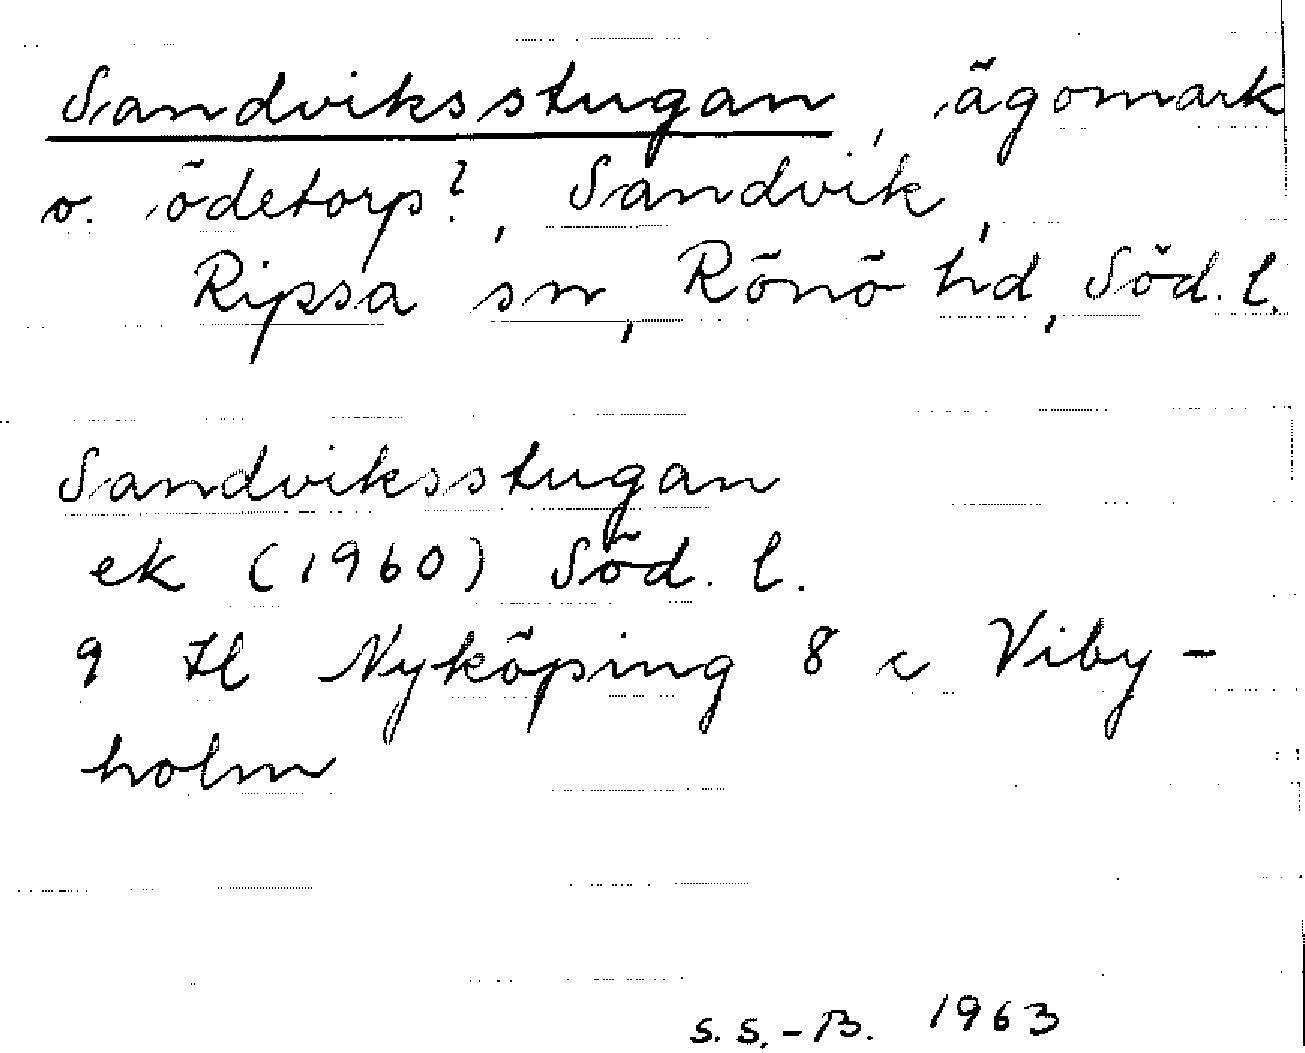 Sandviksstugan, ägomark
o. ödetorp?, Sandvik,
Ripsa sn, Rönö hd, Söd. l.
Sandviksstugan
ek (1960) Söd. l.
9 H Nyköping 8 c Viby-
holm
S. S.-B. 1963